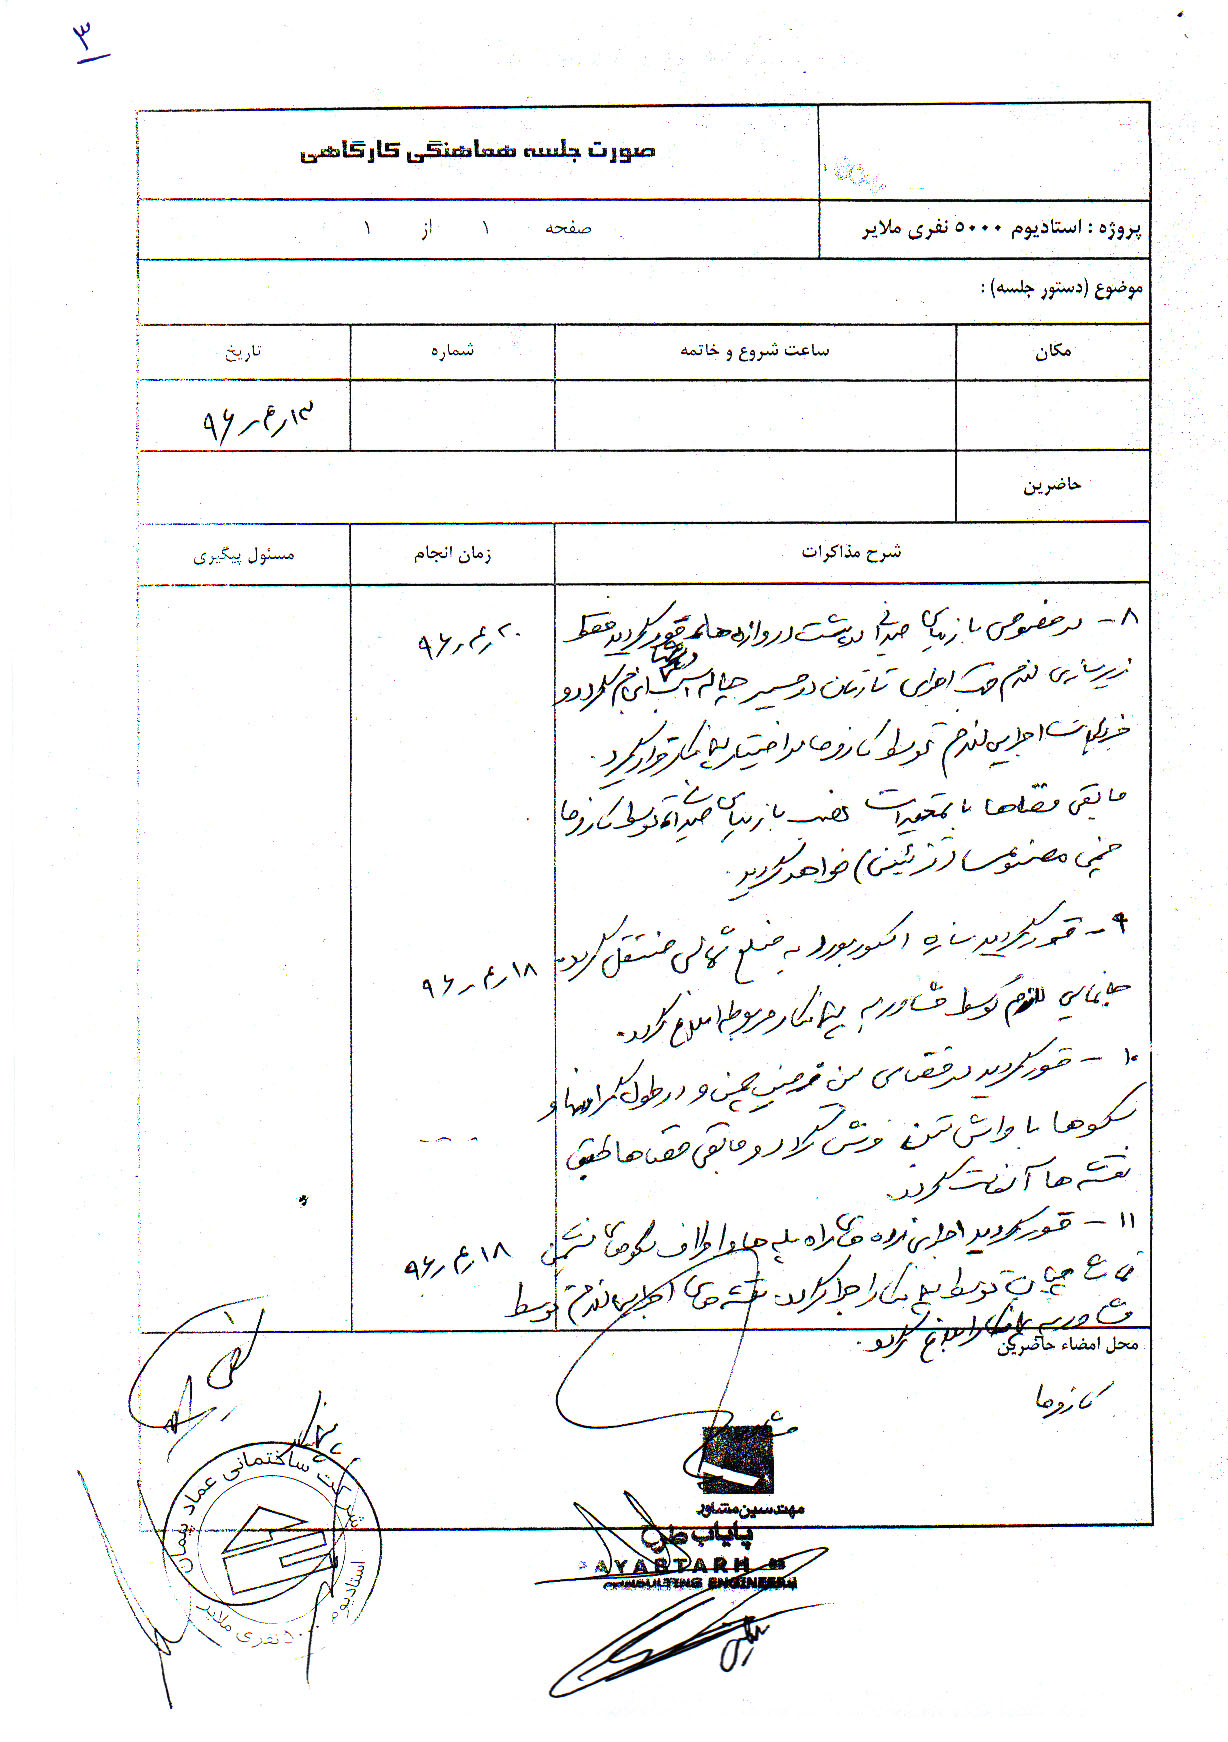 ۳
صورت جلسه هماهنگی کارگاهی
پروژه : استادیوم ۵۰۰۰ نفری ملایر
صفحه ۱ از ۱
موضوع (دستور جلسه) :
مکان ساعت شروع و خاتمه شماره تاریخ
۹۶٫۴٫۱۳
حاضرین
شرح مذاکرات زمان انجام مسئول پیگیری
۸- در خصوص بازیهای میدانی در پشت دروازه ها مقرر گردید فقط ۹۶٫۴٫۲۰
زیرسازی لازم جهت اجرای تارتان در مسیر چاله انجام گردد و
اجرایی لازم توسط کارفرما در اختیار پیمانکار قرار گیرد.
مابقی فضاها با تجهیزات بازیهای میدانی توسط کارفرما
چمن مصنوعی (تزئینی) خواهد گردید.
۹- مقرر گردید سازه اسکوربورد به ضلع شمالی منتقل گردد. ۹۶٫۴٫۱۸
جانمایی لازم توسط مشاور به پیمانکار مربوطه ابلاغ گردد.
۱۰- مقرر گردید در فضای بین زمین چمن و در طول و
سکوها با واش بتن فرش گردد و مابقی فضاها طبق
نقشه ها آسفالت گردد.
۱۱- مقرر گردید اجرای نرده های راه پله ها و اطراف سکوهای نشیمن ۹۶٫۴٫۱۸
توسط پیمانکار اجرا گردد. نقشه های اجرایی لازم توسط
مشاور به پیمانکار ابلاغ گردد.
محل امضاء حاضرین
کارفرما
مشاور
مهندسین مشاور
پایاب طرح
AYABTARH
CONSULTING ENGINEERS
شرکت ساختمانی عماد پیمان
استادیوم ۵۰۰۰ نفری ملایر